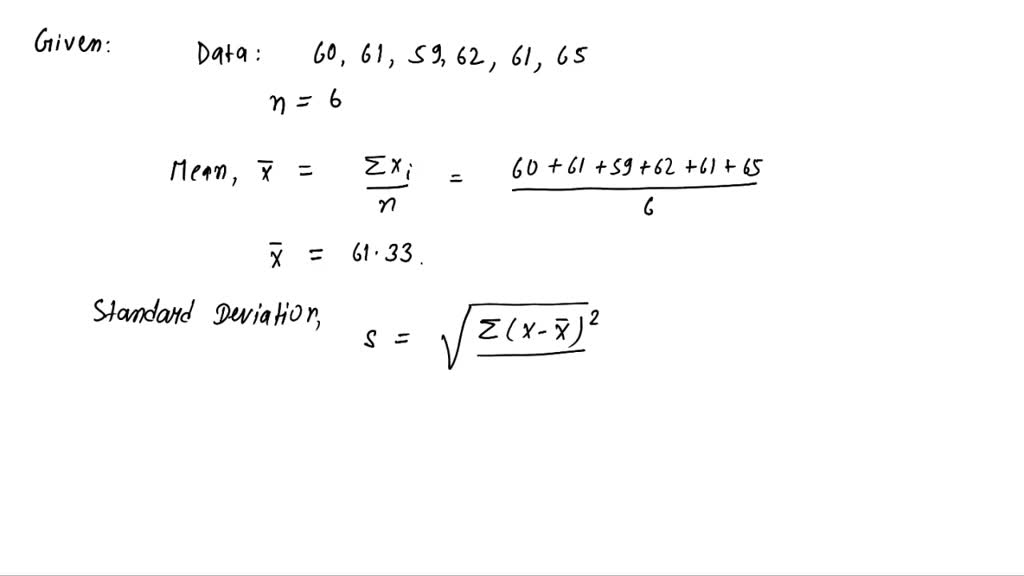 Given: Data: 60, 61, 59, 62, 61, 65
n = 6
Mean, x̄ = Σxi / n = 60 + 61 + 59 + 62 + 61 + 65 / 6
x̄ = 61.33.
Standard Deviation, s = √Σ(x - x̄)²